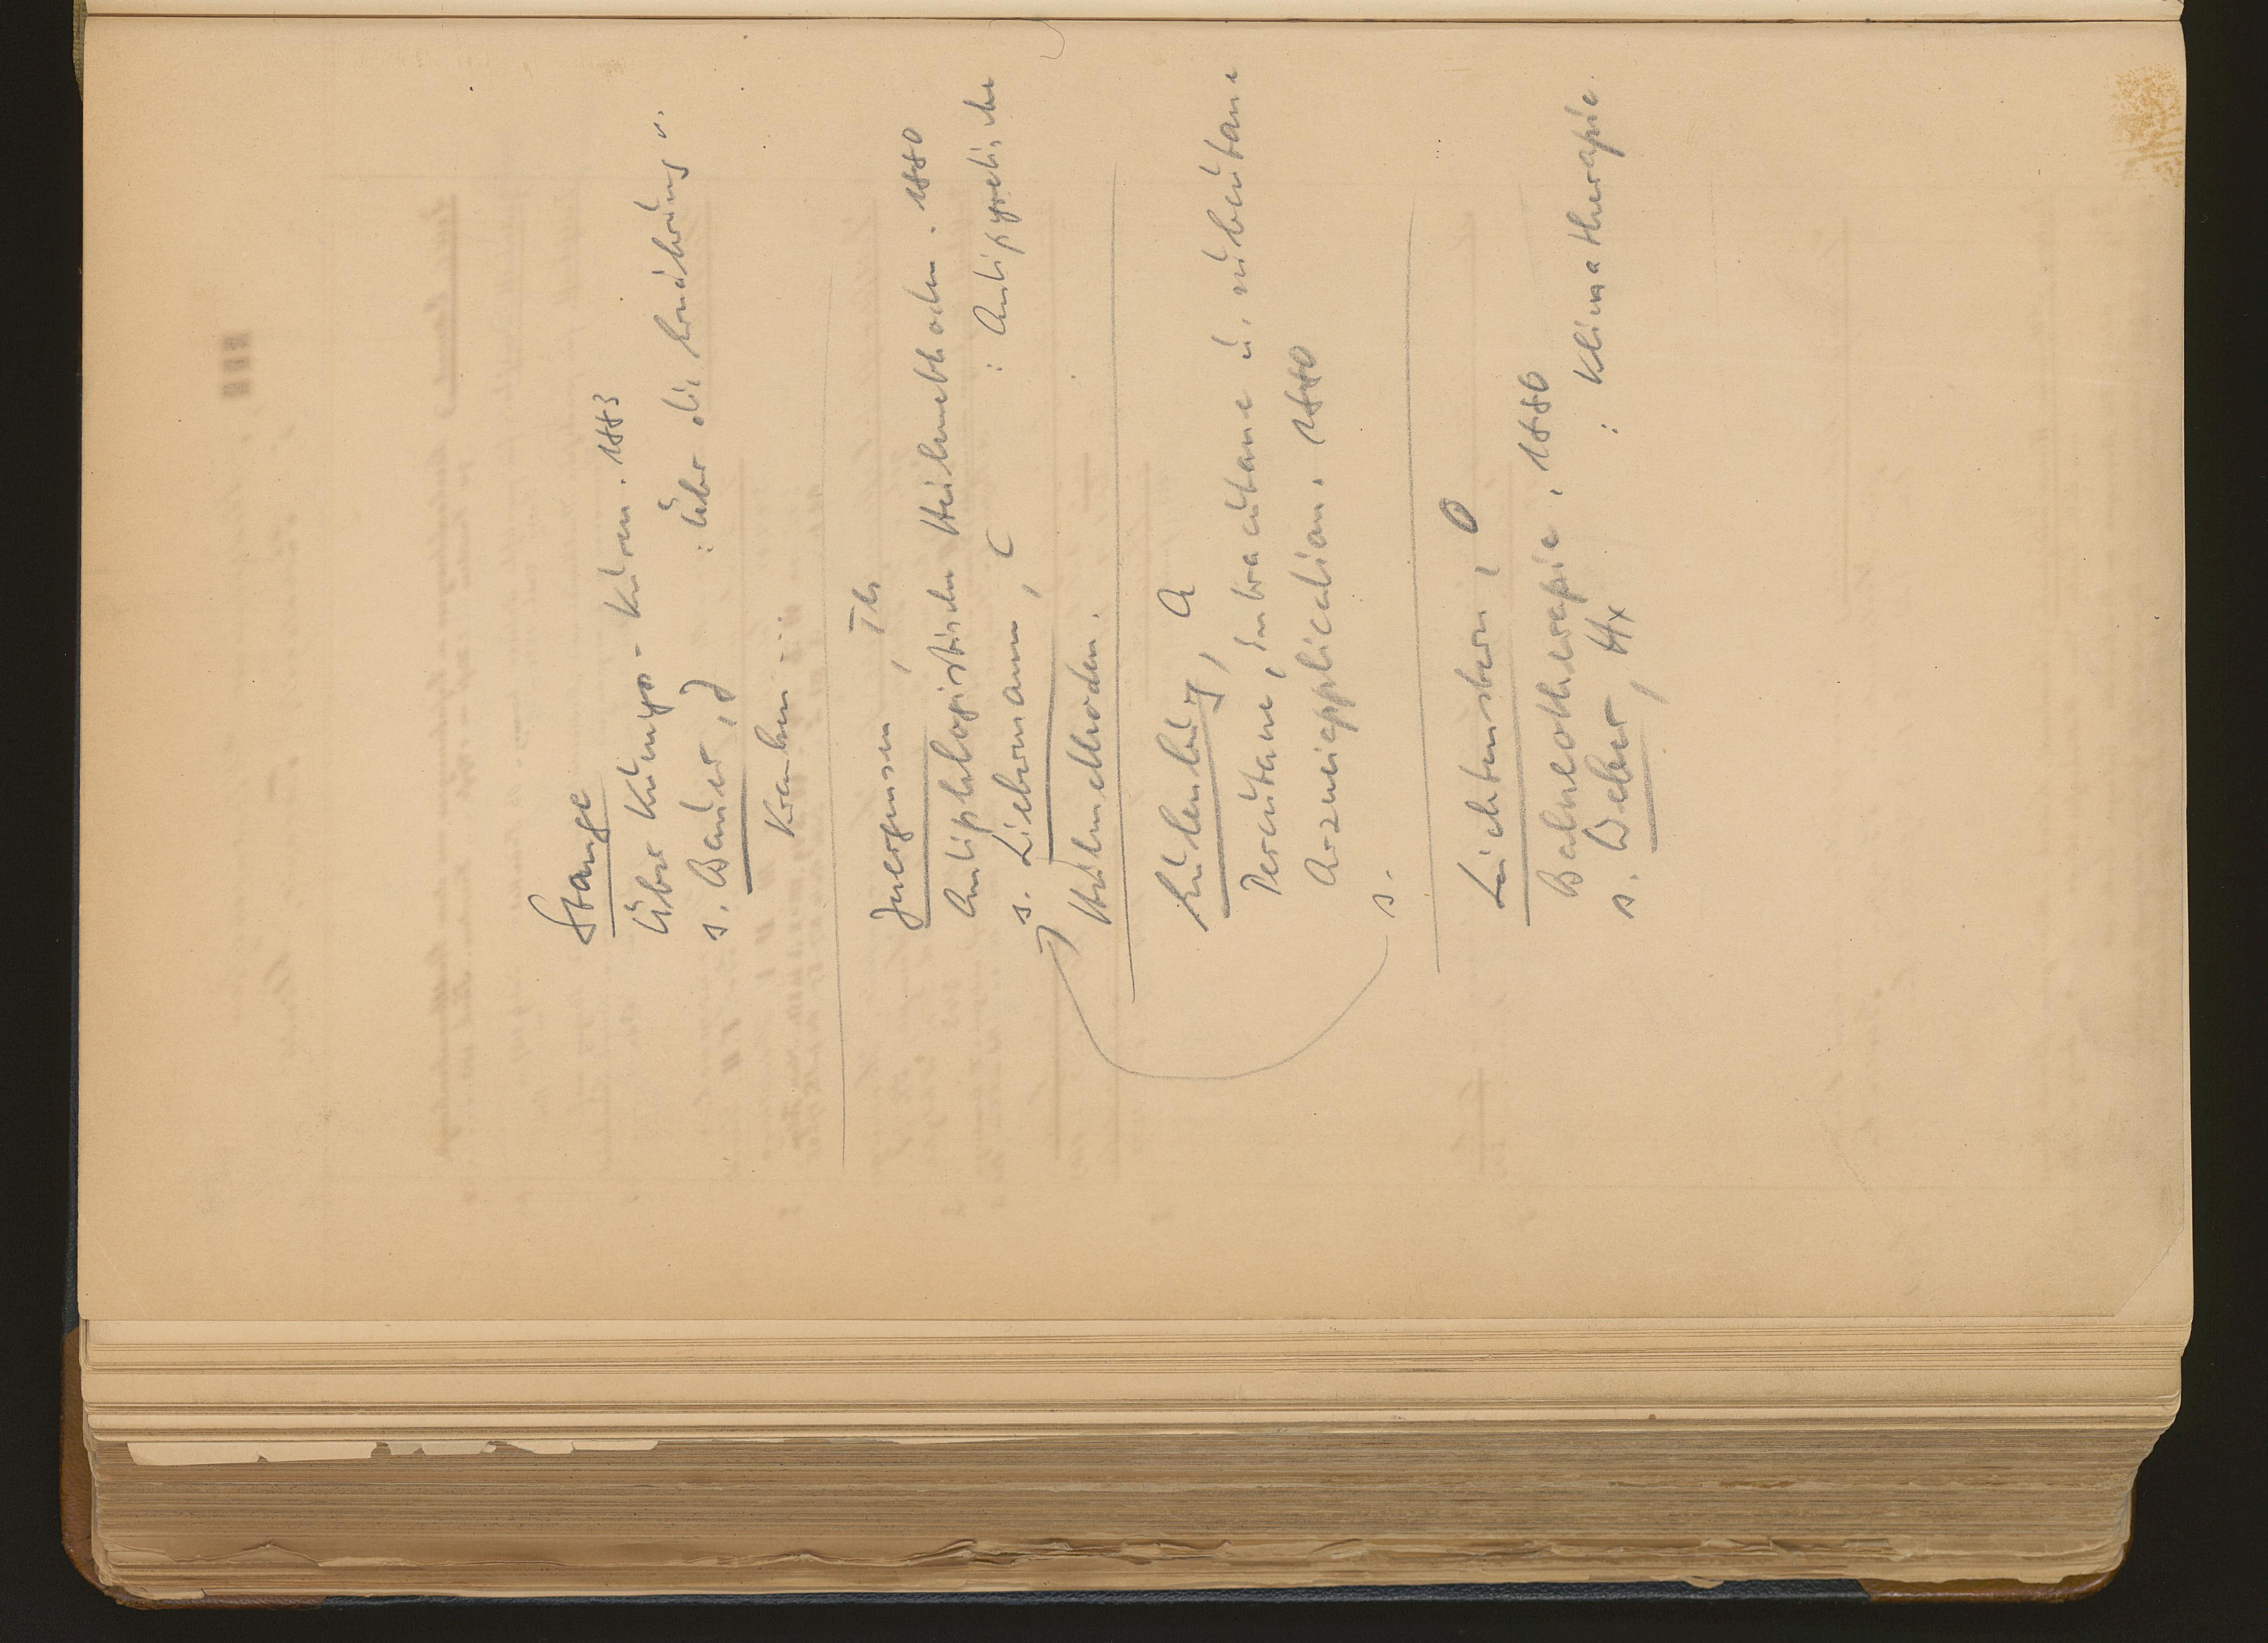 Stange
Über Kumys-Kuren. 1883
s. Bauer, J : Über die Ernährung v.
Kranken ...
Juergensen, Th
Antiphlogistische Heilmethoden. 1880
s. Liebermann, C : Antipyretische
Heilmethoden.
Eulenburg, A
Percutane, Intracutane u. subcutane
Arzneiapplication. 1880
s.
Leichtenstern, O
Balneotherapie. 1880
s. Weber, H : Klimatherapie